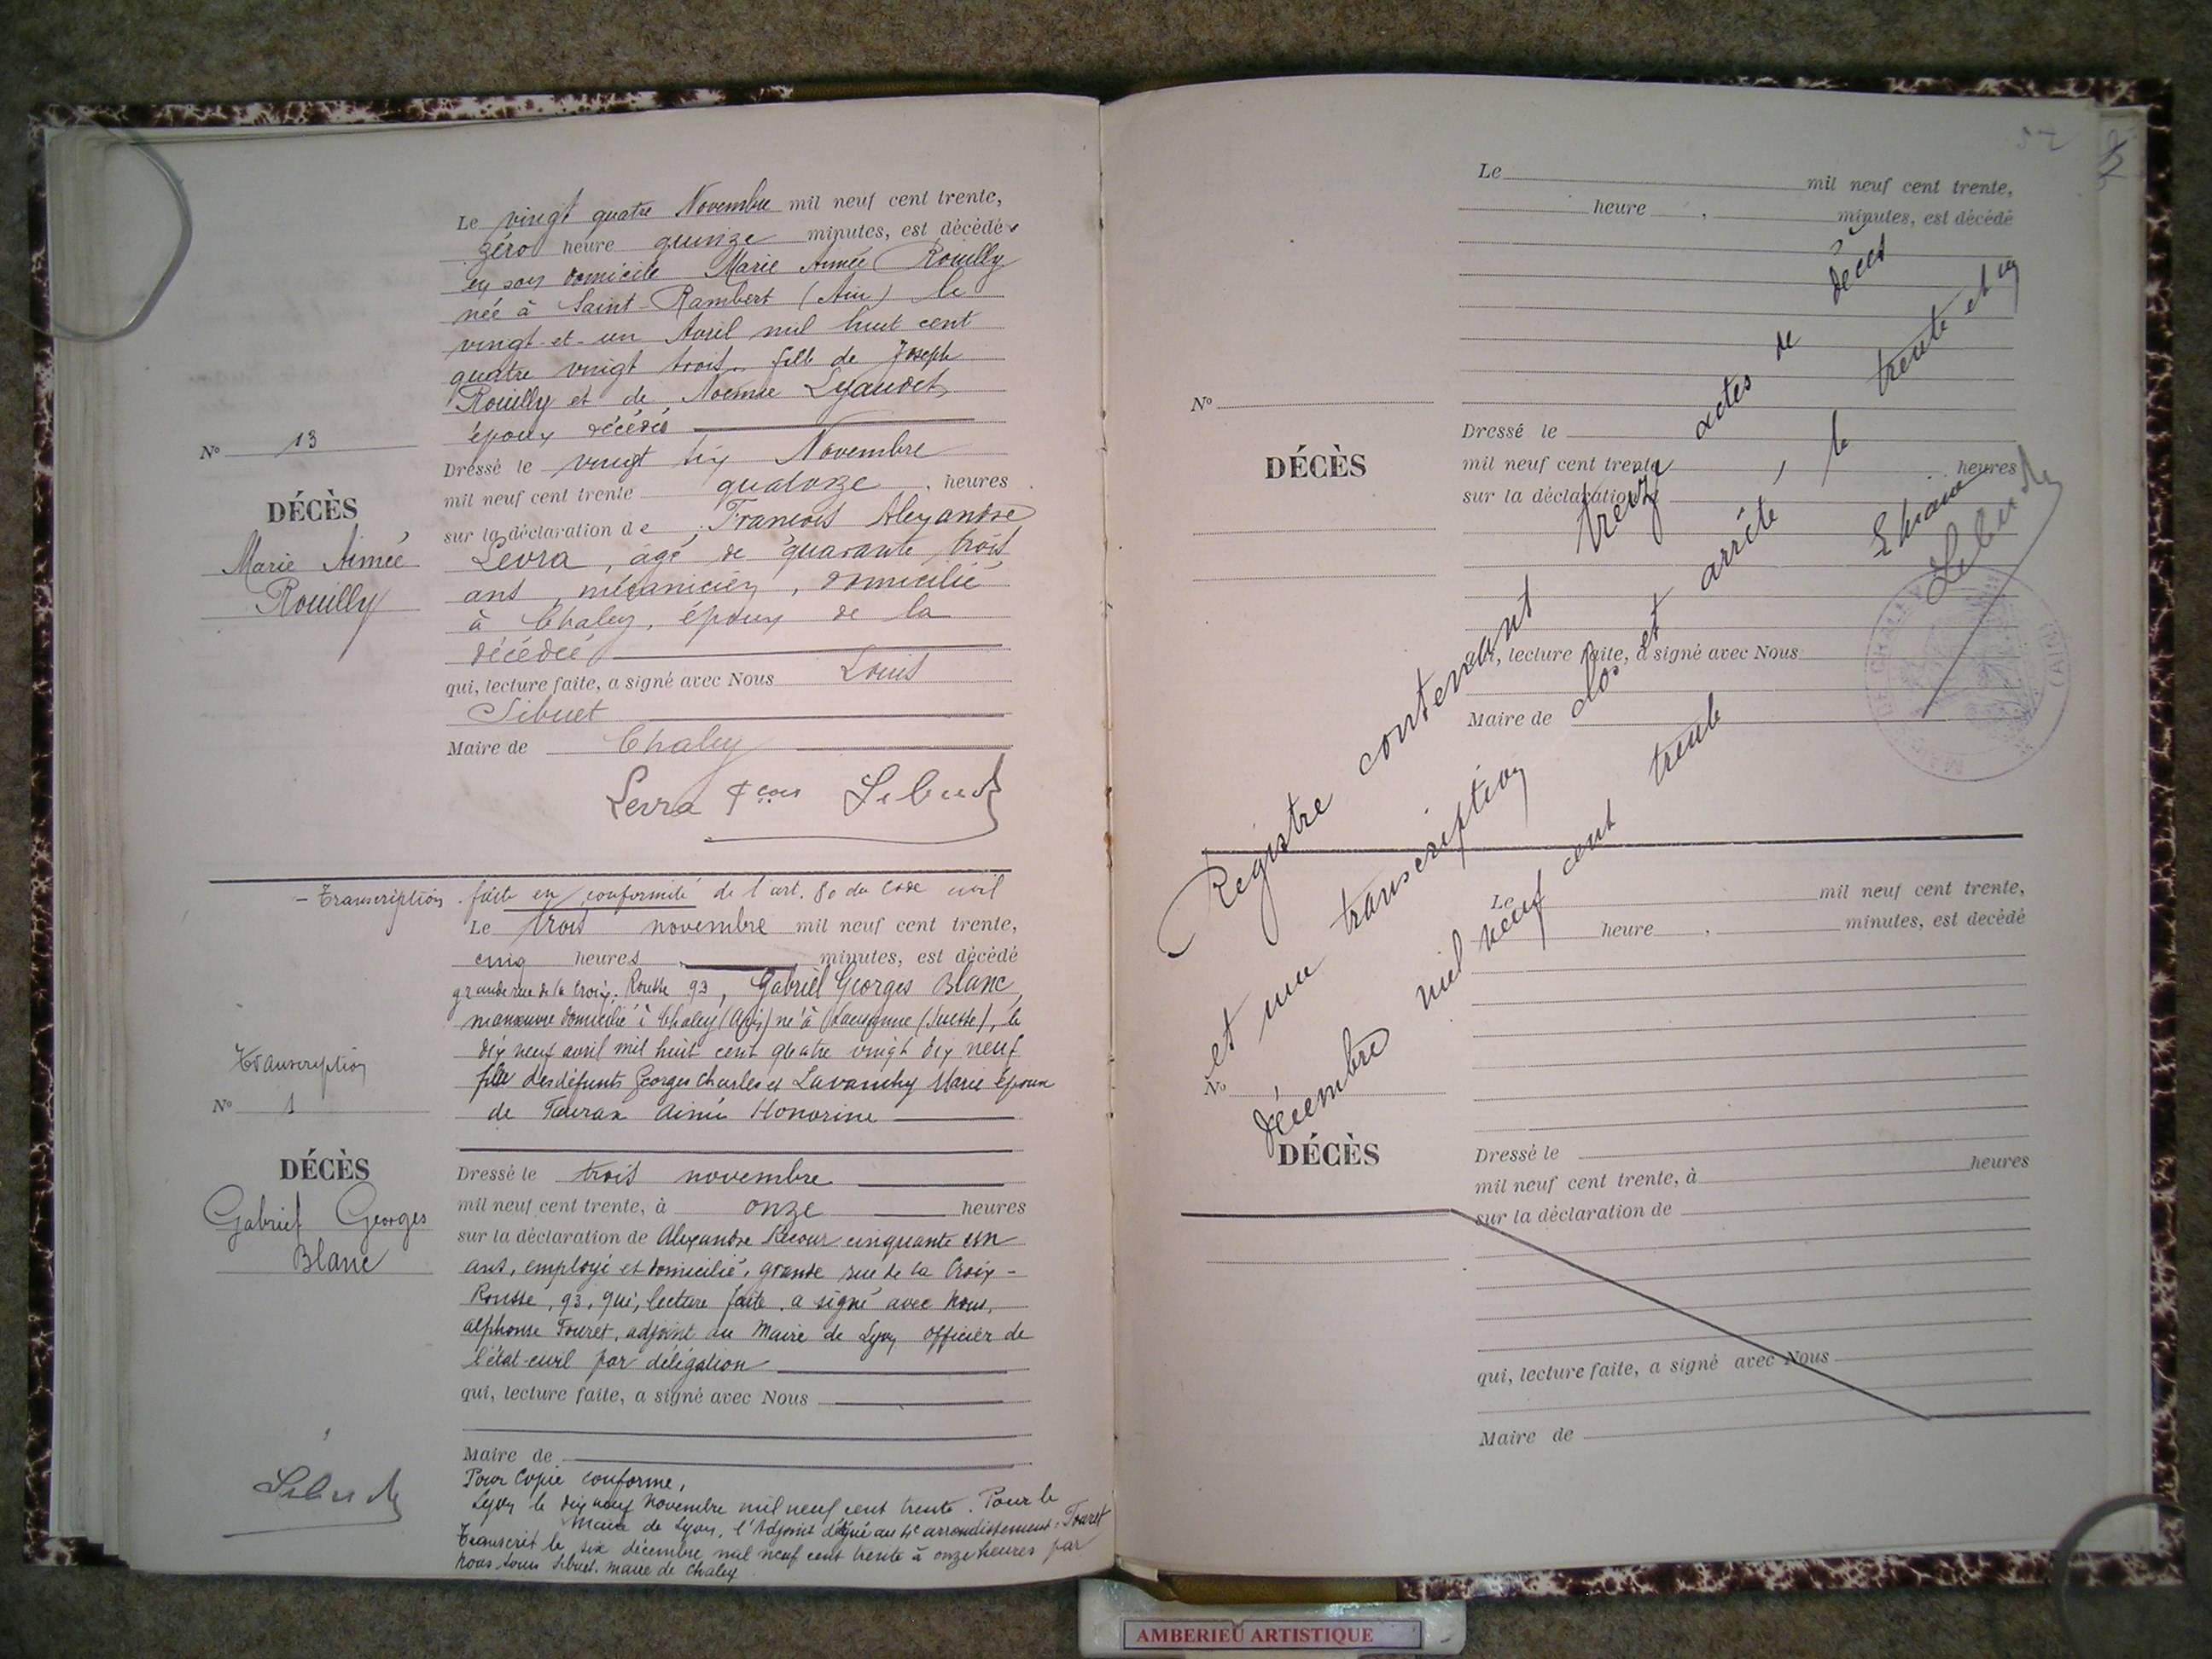 Le vingt quatre Novembre mil neuf cent trente,
zéro heure quinze minutes, est décédée
en son domicile Marie Aimée Rouilly
née à Saint-Rambert (Ain) le
vingt-et-un Avril mil huit cent
quatre vingt trois, fille de Joseph
Rouilly et de Noémie Lyaudet,
époux décédés
N° 13
DÉCÈS
Marie Aimée
Rouilly
Dressé le vingt six Novembre
mil neuf cent trente quatorze heures
sur la déclaration de François Alexandre
Levra, âgé de quarante trois
ans, mécanicien, domicilié
à Chaley, époux de la
décédée
qui, lecture faite, a signé avec Nous Louis
Sibuet
Maire de Chaley
Levra Fçois Sibuet
- Transcription faite en conformité de l'art. 80 du Code civil
Le trois novembre mil neuf cent trente,
cinq heures, minutes, est décédé
grande rue de la Croix-Rousse 93, Gabriel Georges Blanc,
manœuvre domicilié à Chaley (Ain) né à Lausanne (Suisse), le
dix neuf avril mil huit cent quatre vingt dix neuf
fils des défunts Georges Charles et Lavanchy Marie époux
de Tauran Aimée Honorine
Transcription
N° 1
DÉCÈS
Gabriel Georges
Blanc
Dressé le trois novembre
mil neuf cent trente, à onze heures
sur la déclaration de Alexandre cinquante un
ans, employé et domicilié, grande rue de la Croix-
Rousse, 93, qui, lecture faite, a signé avec Nous,
Alphonse Touret, adjoint au Maire de Lyon officier de
l'état-civil par délégation
qui, lecture faite, a signé avec Nous
Maire de
Pour Copie conforme,
Lyon le dix neuf Novembre mil neuf cent trente. Pour le
Maire de Lyon, l'Adjoint délégué au 4e arrondissement: Touret
Transcrit le six décembre mil neuf cent trente à onze heures par
Nous Louis Sibuet, maire de Chaley
Sibuet
Le mil neuf cent trente,
heure, minutes, est décédé
N°
DÉCÈS
Dressé le
mil neuf cent trente heures
sur la déclaration d
qui, lecture faite, a signé avec Nous
Maire de
Registre contenant treize actes de décès
et une transcription clos et arrêté, le trente et un
décembre mil neuf cent trente
Le maire
Sibuet
Le mil neuf cent trente,
heure, minutes, est decédé
N°
DÉCÈS
Dressé le
mil neuf cent trente, à heures
sur la déclaration de
qui, lecture faite, a signé avec Nous
Maire de
AMBERIEU ARTISTIQUE